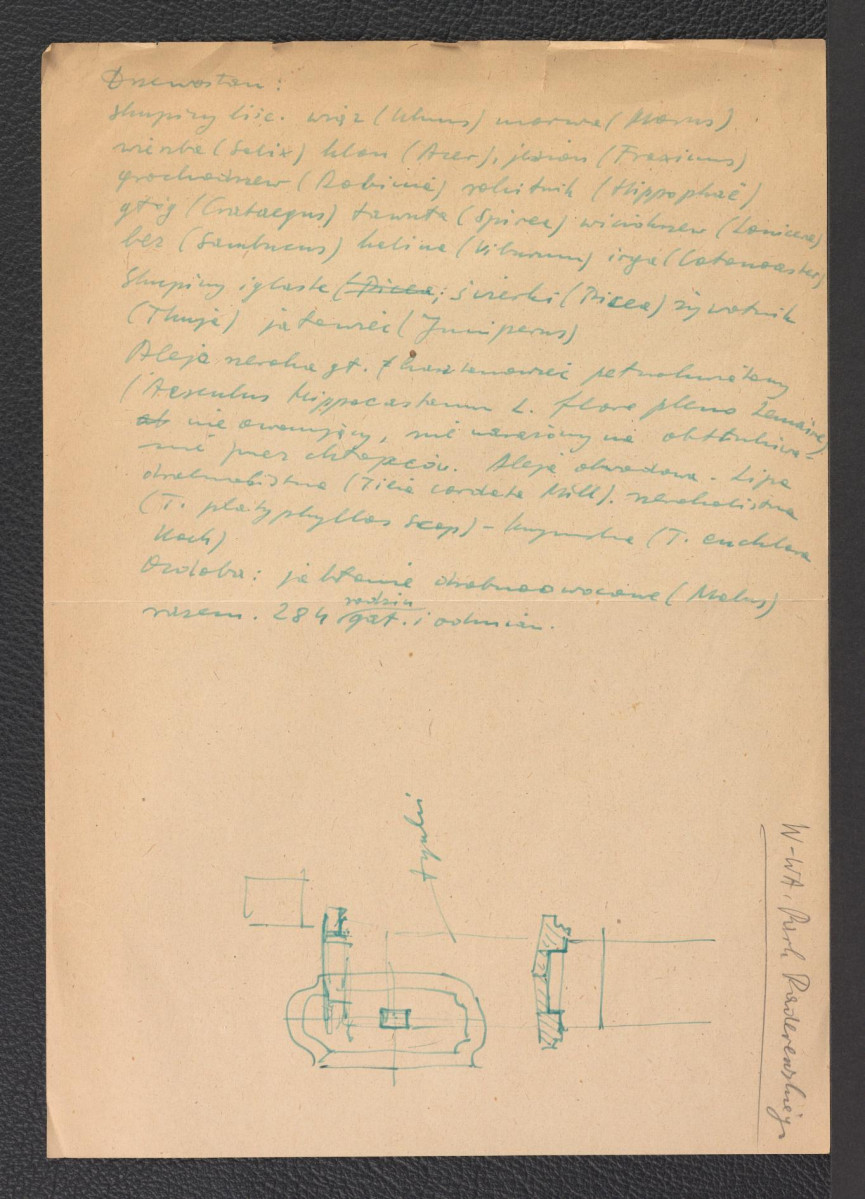 Drzewostan:
Skupiny liśc. wiąz (Ulmus) morwa (Morus)
wierzba (Salix) klon (Acer), jesion (Fraxinus)
grochodrzew (Robinia) rokitnik (Hippophaë)
głóg (Crataegus) tawuła (Spirea) wiciokrzew (Lonicera)
bez (Sambucus) kalina (Viburnum) irga (Cotoneaster)
Skupiny iglaste (Picea; świerki (Picea) żywotnik
(Thuja) jałowiec (Juniperus)
Aleja szeroka gł. kasztanowiec pełnokwiatowy
(Aesculus Hippocastanum L. flore pleno Lemaire)
nie owocujący, nie narażony na obtłukiwa-
nie przez chłopców. Aleja obwodowa - Lipa
drobnolistna (Tilia cordata Mill). szerokolistna
(T. platyphyllos Scop) - krymska (T. euchlora
Koch)
Ozdoba: jabłonie drobnoowocowe (Malus)
razem. 284 rodzin
gat. i odmian.
W-WA, Park Paderewskiego